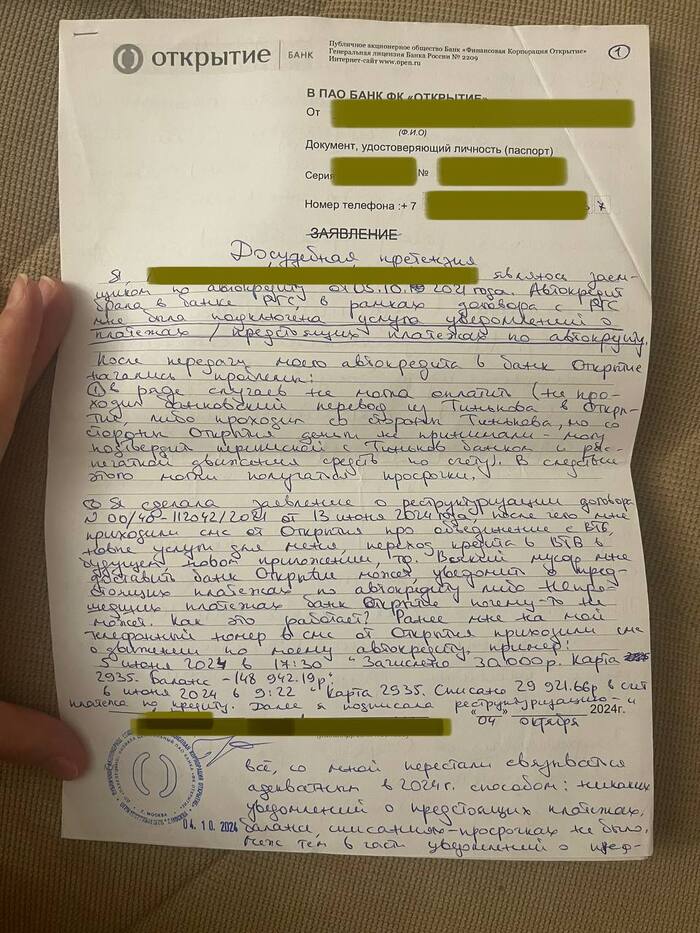 ОТКРЫТИЕ БАНК
Публичное акционерное общество Банк «Финансовая Корпорация Открытие»
Генеральная лицензия Банка России № 2209
Интернет-сайт www.open.ru
1
В ПАО БАНК ФК «ОТКРЫТИЕ»
От
(Ф.И.О)
Документ, удостоверяющий личность (паспорт)
Серия №
Номер телефона :+ 7
ЗАЯВЛЕНИЕ
Досудебная претензия
Я, являюсь заем-
щиком по автокредиту от 05.10. 2021 года. Автокредит
брала в банке РГС в рамках договора с РГС
мне была подключена услуга уведомлений о
платежах / предстоящих платежах по автокредиту.
После передачи моего автокредита в банк Открытие
начались проблемы:
① в ряде случаев не могла оплатить (не про-
ходил банковский перевод из Тинькова в Откры-
тие, либо проходил со стороны Тинькова, но со
стороны Открытия деньги не принимали - могу
подтвердить перепиской с Тиньков банком и рас-
печаткой движения средств по счету). В следствие
этого могли получаться просрочки.
② Я сделала заявление о реструктуризации договора
N 00/40-112042/2021 от 13 июня 2024 года, после чего мне
приходили смс от Открытия про объединение с ВТБ,
новые услуги для меня, переход кредита в ВТБ в
будущем, новом приложении, то. Всякий мусор мне
доставить банк Открытие может, уведомить о пред-
стоящих платежах по автокредиту либо непро-
шедших платежах банк Открытие почему-то не
может. Как это работает? Ранее мне на мой
телефонный номер в смс от Открытия приходили смс
о движении по моему автокредиту, пример:
5 июня 2024 в 17:30 "Зачислено 30000р. Карта
2935. Баланс -148 942.19р;
6 июня 2024 в 9:22 "Карта 2935. Списано 29 921.66р в счет
платежа по кредиту. Далее я подписала реструктуризацию - и
«04» октября 2024г.
г. МОСКВА
04.10.2024
всё, со мной перестали связываться
адекватным в 2024г. способом: никаких
уведомлений о предстоящих платежах,
балансе, списаниях-просрочках не было.
Меж тем в части уведомлений о пред-